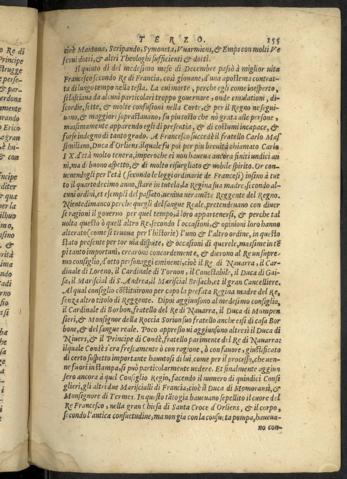 TERZO. 155
cioè Montona, Scripando, Symoneta, Vuarmiens, & Emps con molti Ve
scoui dotti, & altri Theologhi sufficienti & dotti.
Il quinto dì del medesimo mese di Decembre passò à miglior uita
Francesco secondo Re di Francia, così giouane, d'una apostema contrat-
ta di lungo tempo nella testa. La cui morte, perche egli come inesperto,
si lasciaua da alcuni particolari troppo gouernare, onde emulationi, di-
scordie, sette, & molte confusioni nella Corte, & per il Regno ne segui-
uano, & maggiori soprastauano, fu piu tosto che nò grata alle persone,
massimamente apparendo egli di presentia, & di costumi incapace, &
forse indegno di tanto grado. A Francesco succedè il fratello Carlo Mas
similiano, Duca d'Orliens, il quale fu poi per piu breuità chiamato Carlo
IX. d'età molto tenera, imperoche ei non haueua ancora finiti undici an
ni, ma di buono aspetto, & di molto risuegliato & nobile spirito. Or con-
uenendogli per l'età (secondo le leggi ordinarie de Francesi) infino à tut
to il quartodecimo anno, stare in tutela, la Regina sua madre, secondo al-
cuni ordini, et essempli del passato, ueniua per cōseguēte Reggente del Regno.
Niente dimanco perche quegli del sangue Reale, pretendeuano con diuer
se ragioni il gouerno per quel tempo, à loro appartenersi, & perche tal
uolta questo ò quell altro Re, secondo l'occasioni, & opinioni loro hanno
alterato (come si truoua per l'historie) l'uno & l'altro ordine, in questo
stato presente per tor uia dispute, & occasioni di querele, massime in tē
pi tanto importanti, crearono concordeuolmente, & dierono al Re un supre-
mo consiglio, d'otto personaggi eminenti, cioè il Re di Nauarra, il Car-
dinale di Loreno, il Cardinale di Tornon, il Conestabile, il Duca di Gui-
sa, il Maresciàl di S. Andrea, il Maresciàl Brisach, et il gran Cancelliere.
Al qual consiglio costituirono per capo la prefata Regina madre del Re,
senza altro titolo di Reggente. Dipoi aggiunsono al medesimo consiglio,
il Cardinale di Borbon, fratello del Re di Nauarra, il Duca di Mompen
sieri, & Monsignore della Roccia Surion suo fratello anche essi di casa Bor
bone, & del sangue reale. Poco appresso ui aggiunsono altresi il Duca di
Niuers, & il Principe di Condè, fratello parimente del Re di Nauarra:
il quale Condè s'era frescamente ò con ragione, ò con fauore, giustificato
di certo sospetto importante hauutosi di lui, come per il processo, che uen-
ne fuori in stampa, si può particolarmente uedere. Et finalmente aggiun
sero ancora à quel Consiglio Regio, facendo il numero di quindici Consi
glieri, gli altri due Marescialli di Francia, cioè il Duca di Memoransì, &
Monsignore di Termes. In questo tāto già haueuano sepellito il cuore del
Re Francesco, nella gran chiesa di Santa Croce d'Orliens, & il corpo,
secondo l'antica consuetudine, ma non già con la consueta pompa, haueua-
no con-